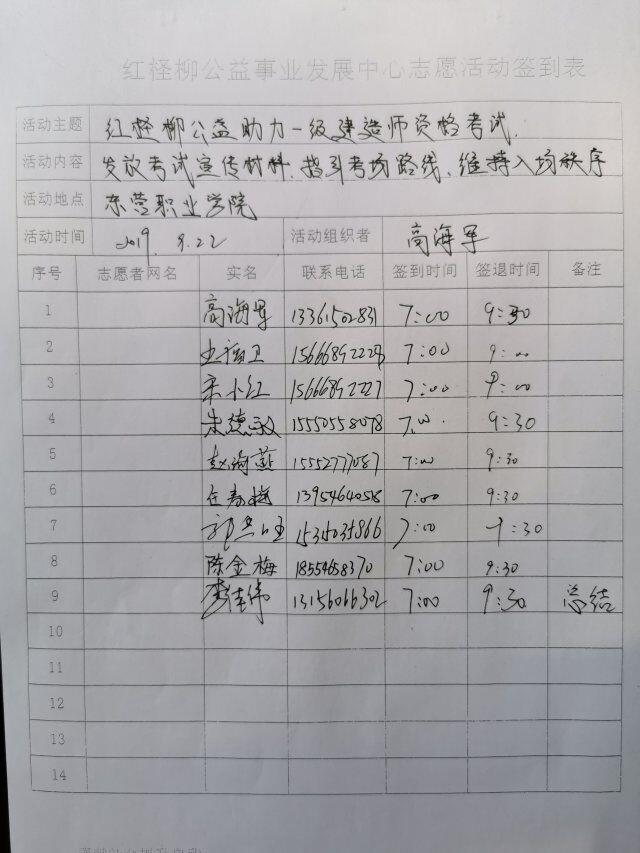 红柽柳公益事业发展中心志愿活动签到表
活动主题 红柽柳公益助力一级建造师资格考试.
活动内容 发放考试宣传材料、指引考场路线、维持入场秩序
活动地点 东营职业学院
活动时间 2019. 9.22 活动组织者 高海军
序号 志愿者网名 实名 联系电话 签到时间 签退时间 备注
1 高海军 13361502831 7:00 9:30
2 15666892228 7:00 9:00
3 宋小红 15666892227 7:00 9:00
4 朱德敏 15550558078 7:00 9:30
5 赵海燕 15552777087 7:00 9:30
6 任春梅 13954640518 7:00 9:30
7 15315035866 7:00 9:30
8 陈金梅 18554658370 7:00 9:30
9 李佳伟 13156066302 7:00 9:30 总结
10
11
12
13
14